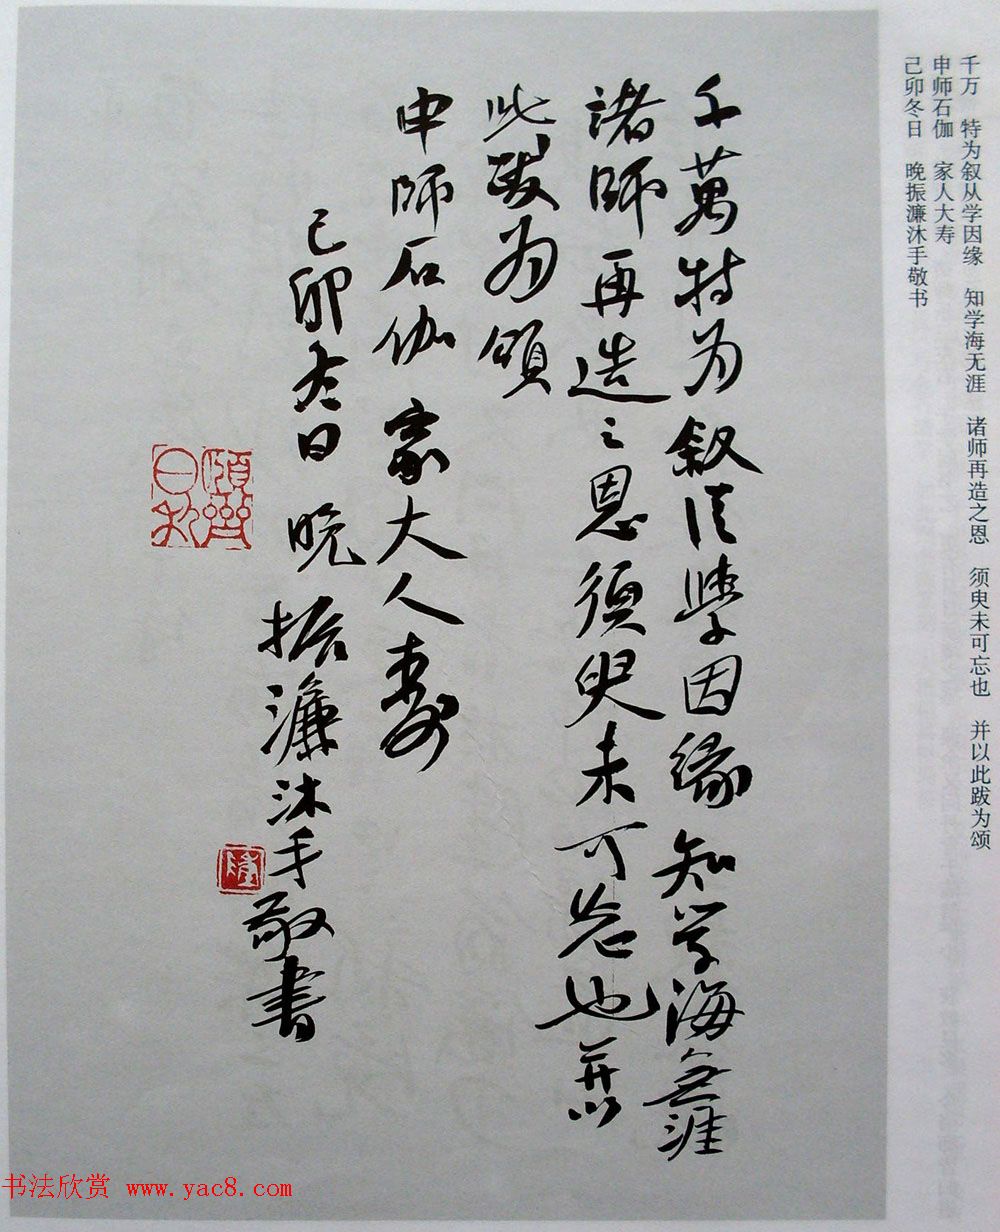 千万　特为叙从学因缘　知学海无涯　诸师再造之恩　须臾未可忘也　并以此跋为颂
申师石伽　家人大寿
己卯冬日　晚振濂沐手敬书
千萬特为叙從學因緣知学海無涯
諸師再造之恩須臾未可忘也並以
此跋为頌
申師石伽家大人壽
己卯冬日晚振濂沐手敬書
书法欣赏 www.yac8.com